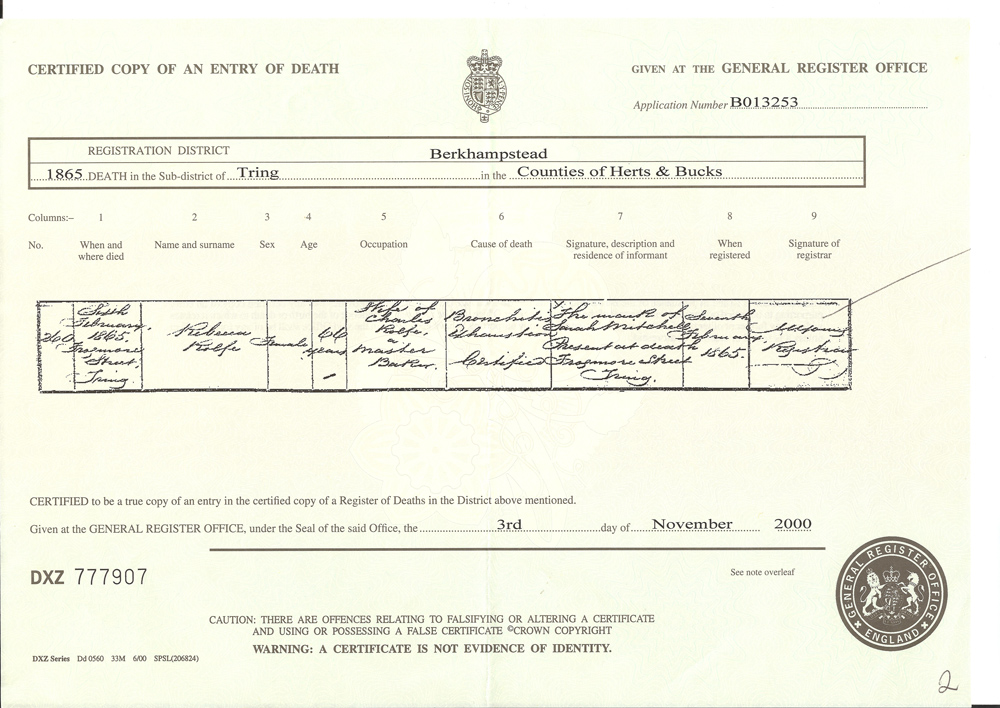 CERTIFIED COPY OF AN ENTRY OF DEATH
GIVEN AT THE GENERAL REGISTER OFFICE
Application Number B013253
REGISTRATION DISTRICT Berkhampstead
1865 DEATH in the Sub-district of Tring in the Counties of Herts & Bucks
Columns:– 1 2 3 4 5 6 7 8 9
No. When and where died Name and surname Sex Age Occupation Cause of death Signature, description and residence of informant When registered Signature of registrar
260
Sixth
February
1865.
Frogmore
Street,
Tring.
Rebecca
Rolfe
Female
66
years
Wife of
Charles
Rolfe,
a
Master
Baker.
Bronchitis
Exhaustion
Certified
The mark of
Sarah Mitchell
Present at death
Frogmore Street
Tring.
Seventh
February
1865.
Registrar
CERTIFIED to be a true copy of an entry in the certified copy of a Register of Deaths in the District above mentioned.
Given at the GENERAL REGISTER OFFICE, under the Seal of the said Office, the 3rd day of November 2000
DXZ 777907
See note overleaf
GENERAL REGISTER OFFICE
ENGLAND
CAUTION: THERE ARE OFFENCES RELATING TO FALSIFYING OR ALTERING A CERTIFICATE
AND USING OR POSSESSING A FALSE CERTIFICATE ©CROWN COPYRIGHT
WARNING: A CERTIFICATE IS NOT EVIDENCE OF IDENTITY.
DXZ Series Dd 0560 33M 6/00 SPSL(206824)
2